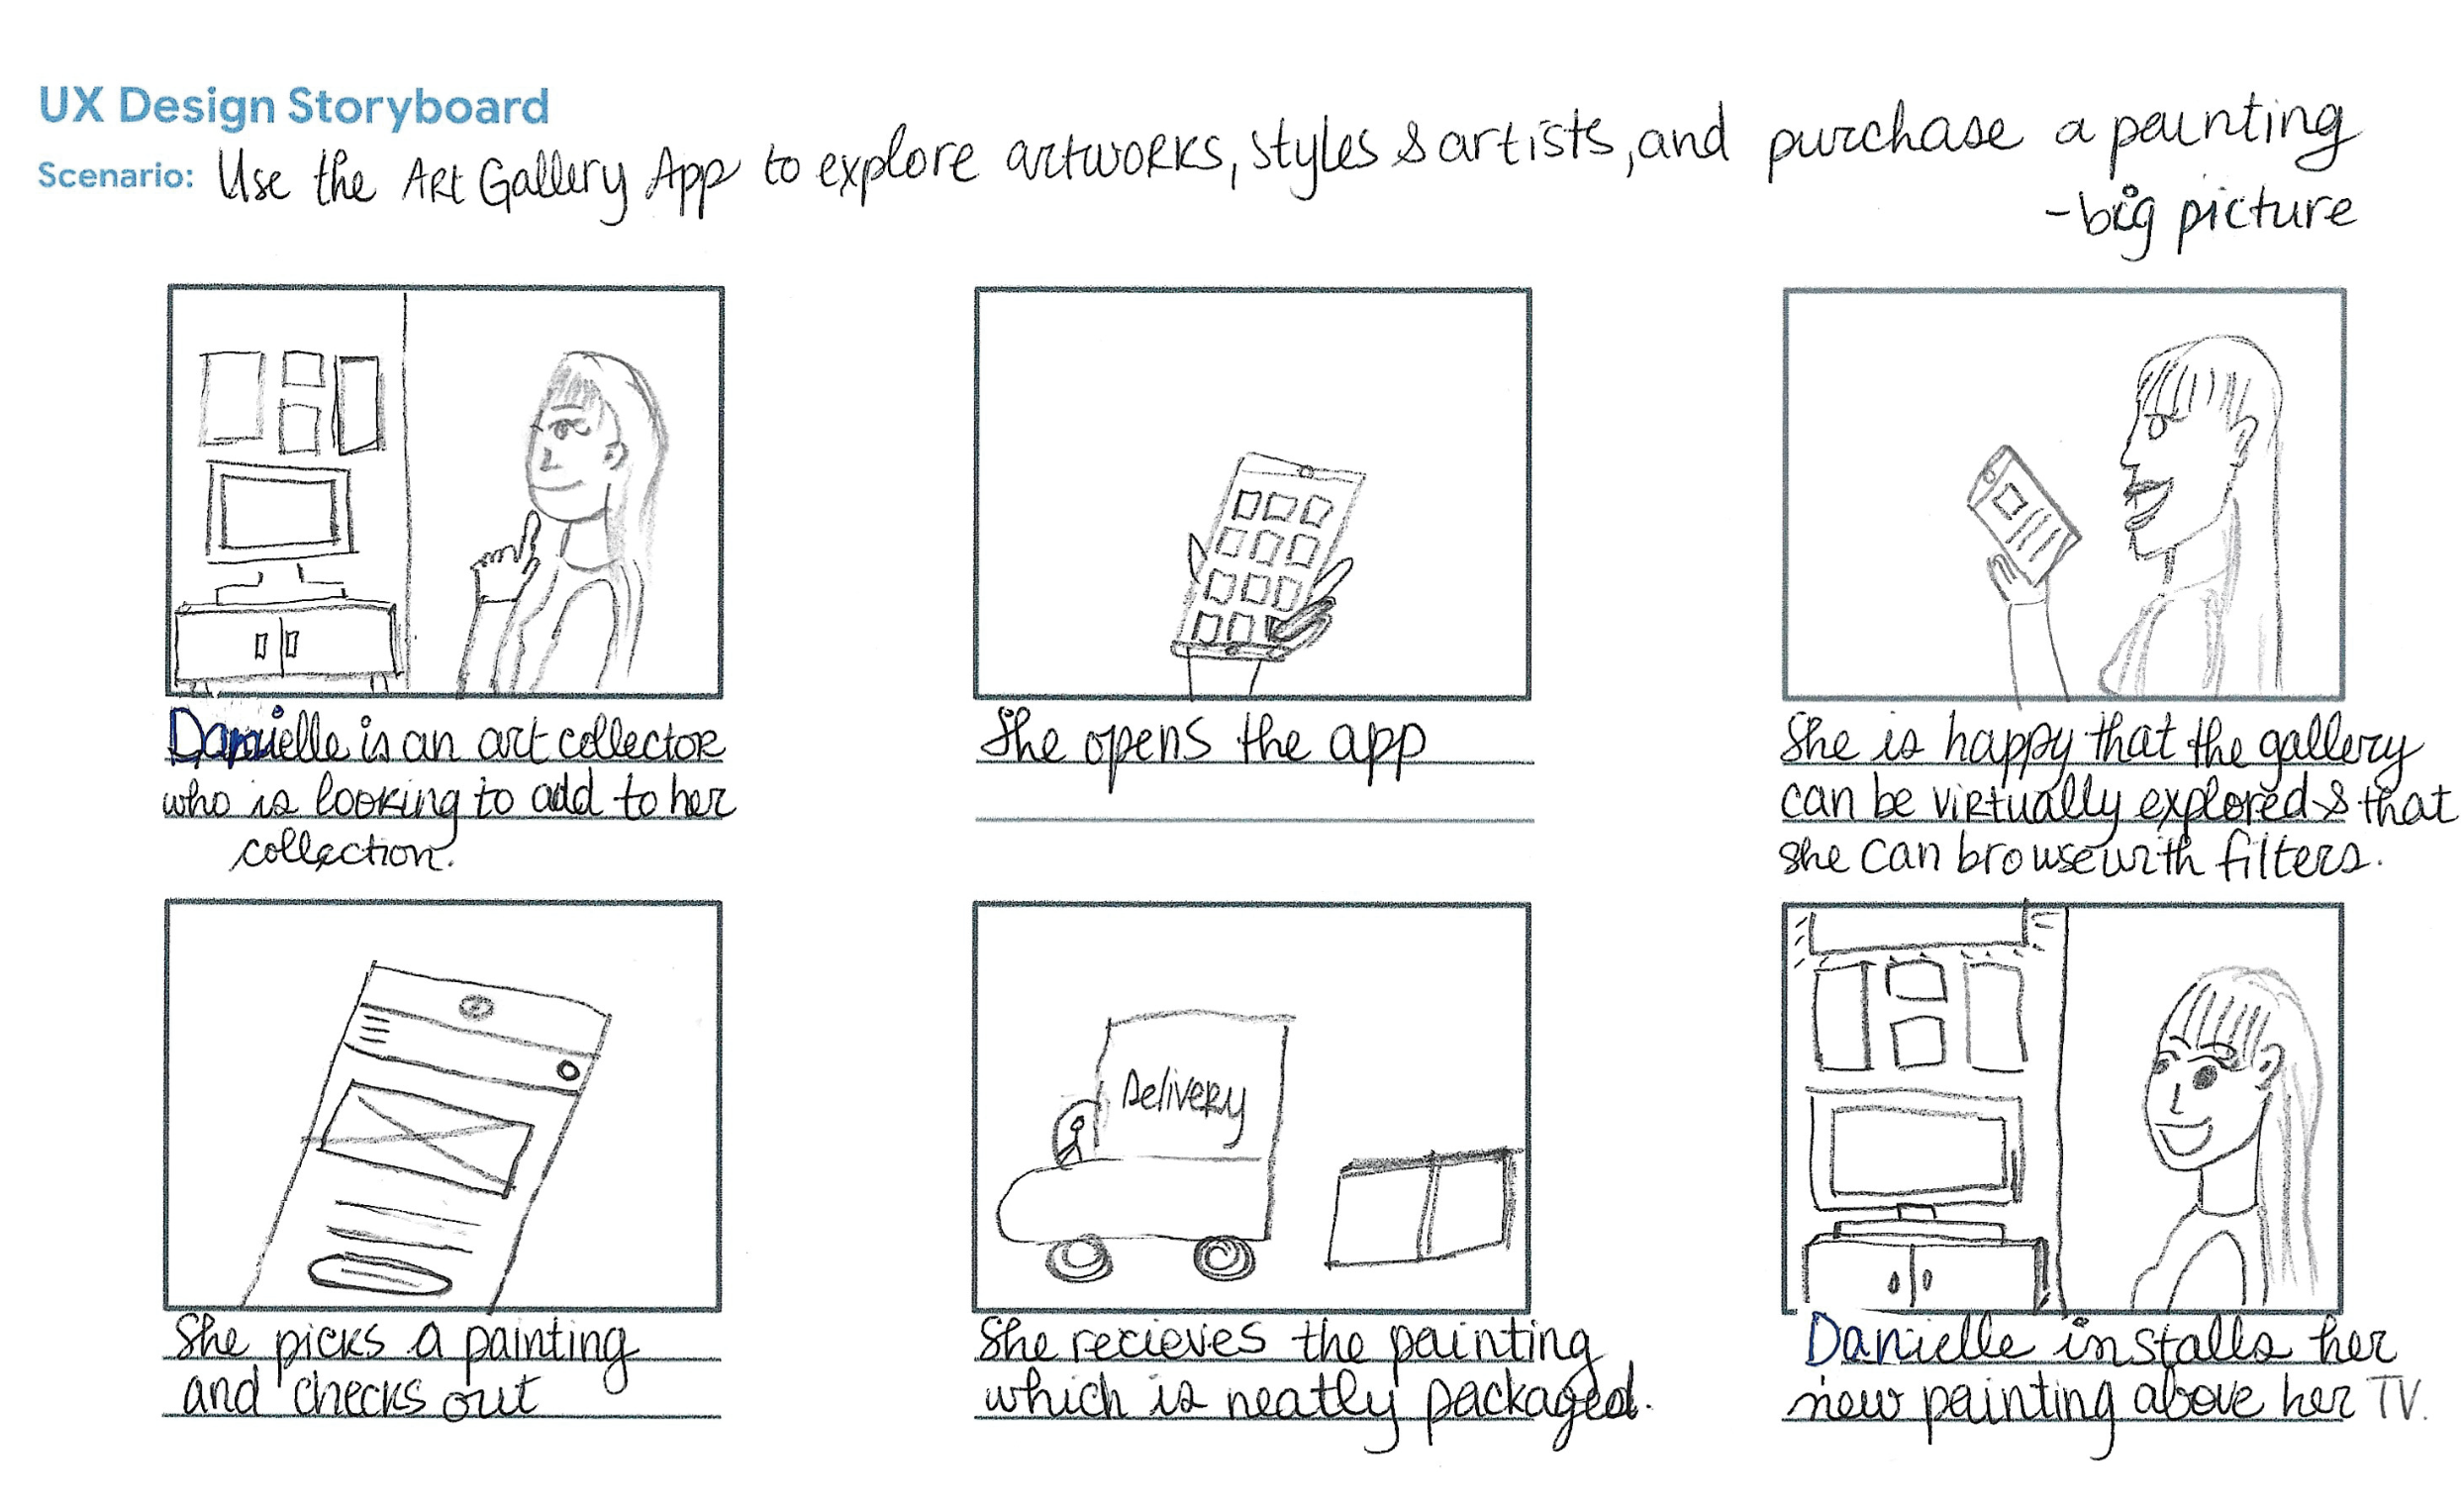 UX Design Storyboard
Scenario: Use the Art Gallery App to explore artworks, styles & artists, and purchase a painting
- big picture
Danielle is an art collector
who is looking to add to her
collection.
She opens the app
She is happy that the gallery
can be virtually explored & that
she can browse with filters.
She picks a painting
and checks out
Delivery
She recieves the painting
which is neatly packaged.
Danielle installs her
new painting above her TV.